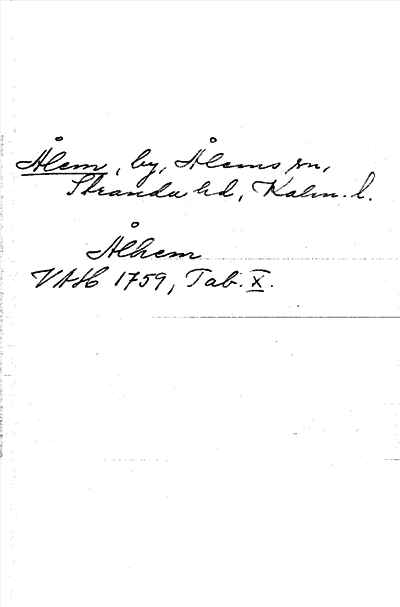 Ålem, by, Ålems sn,
Stranda hd, Kalm. l.
Ålhem
VAH 1759, Tab. X.